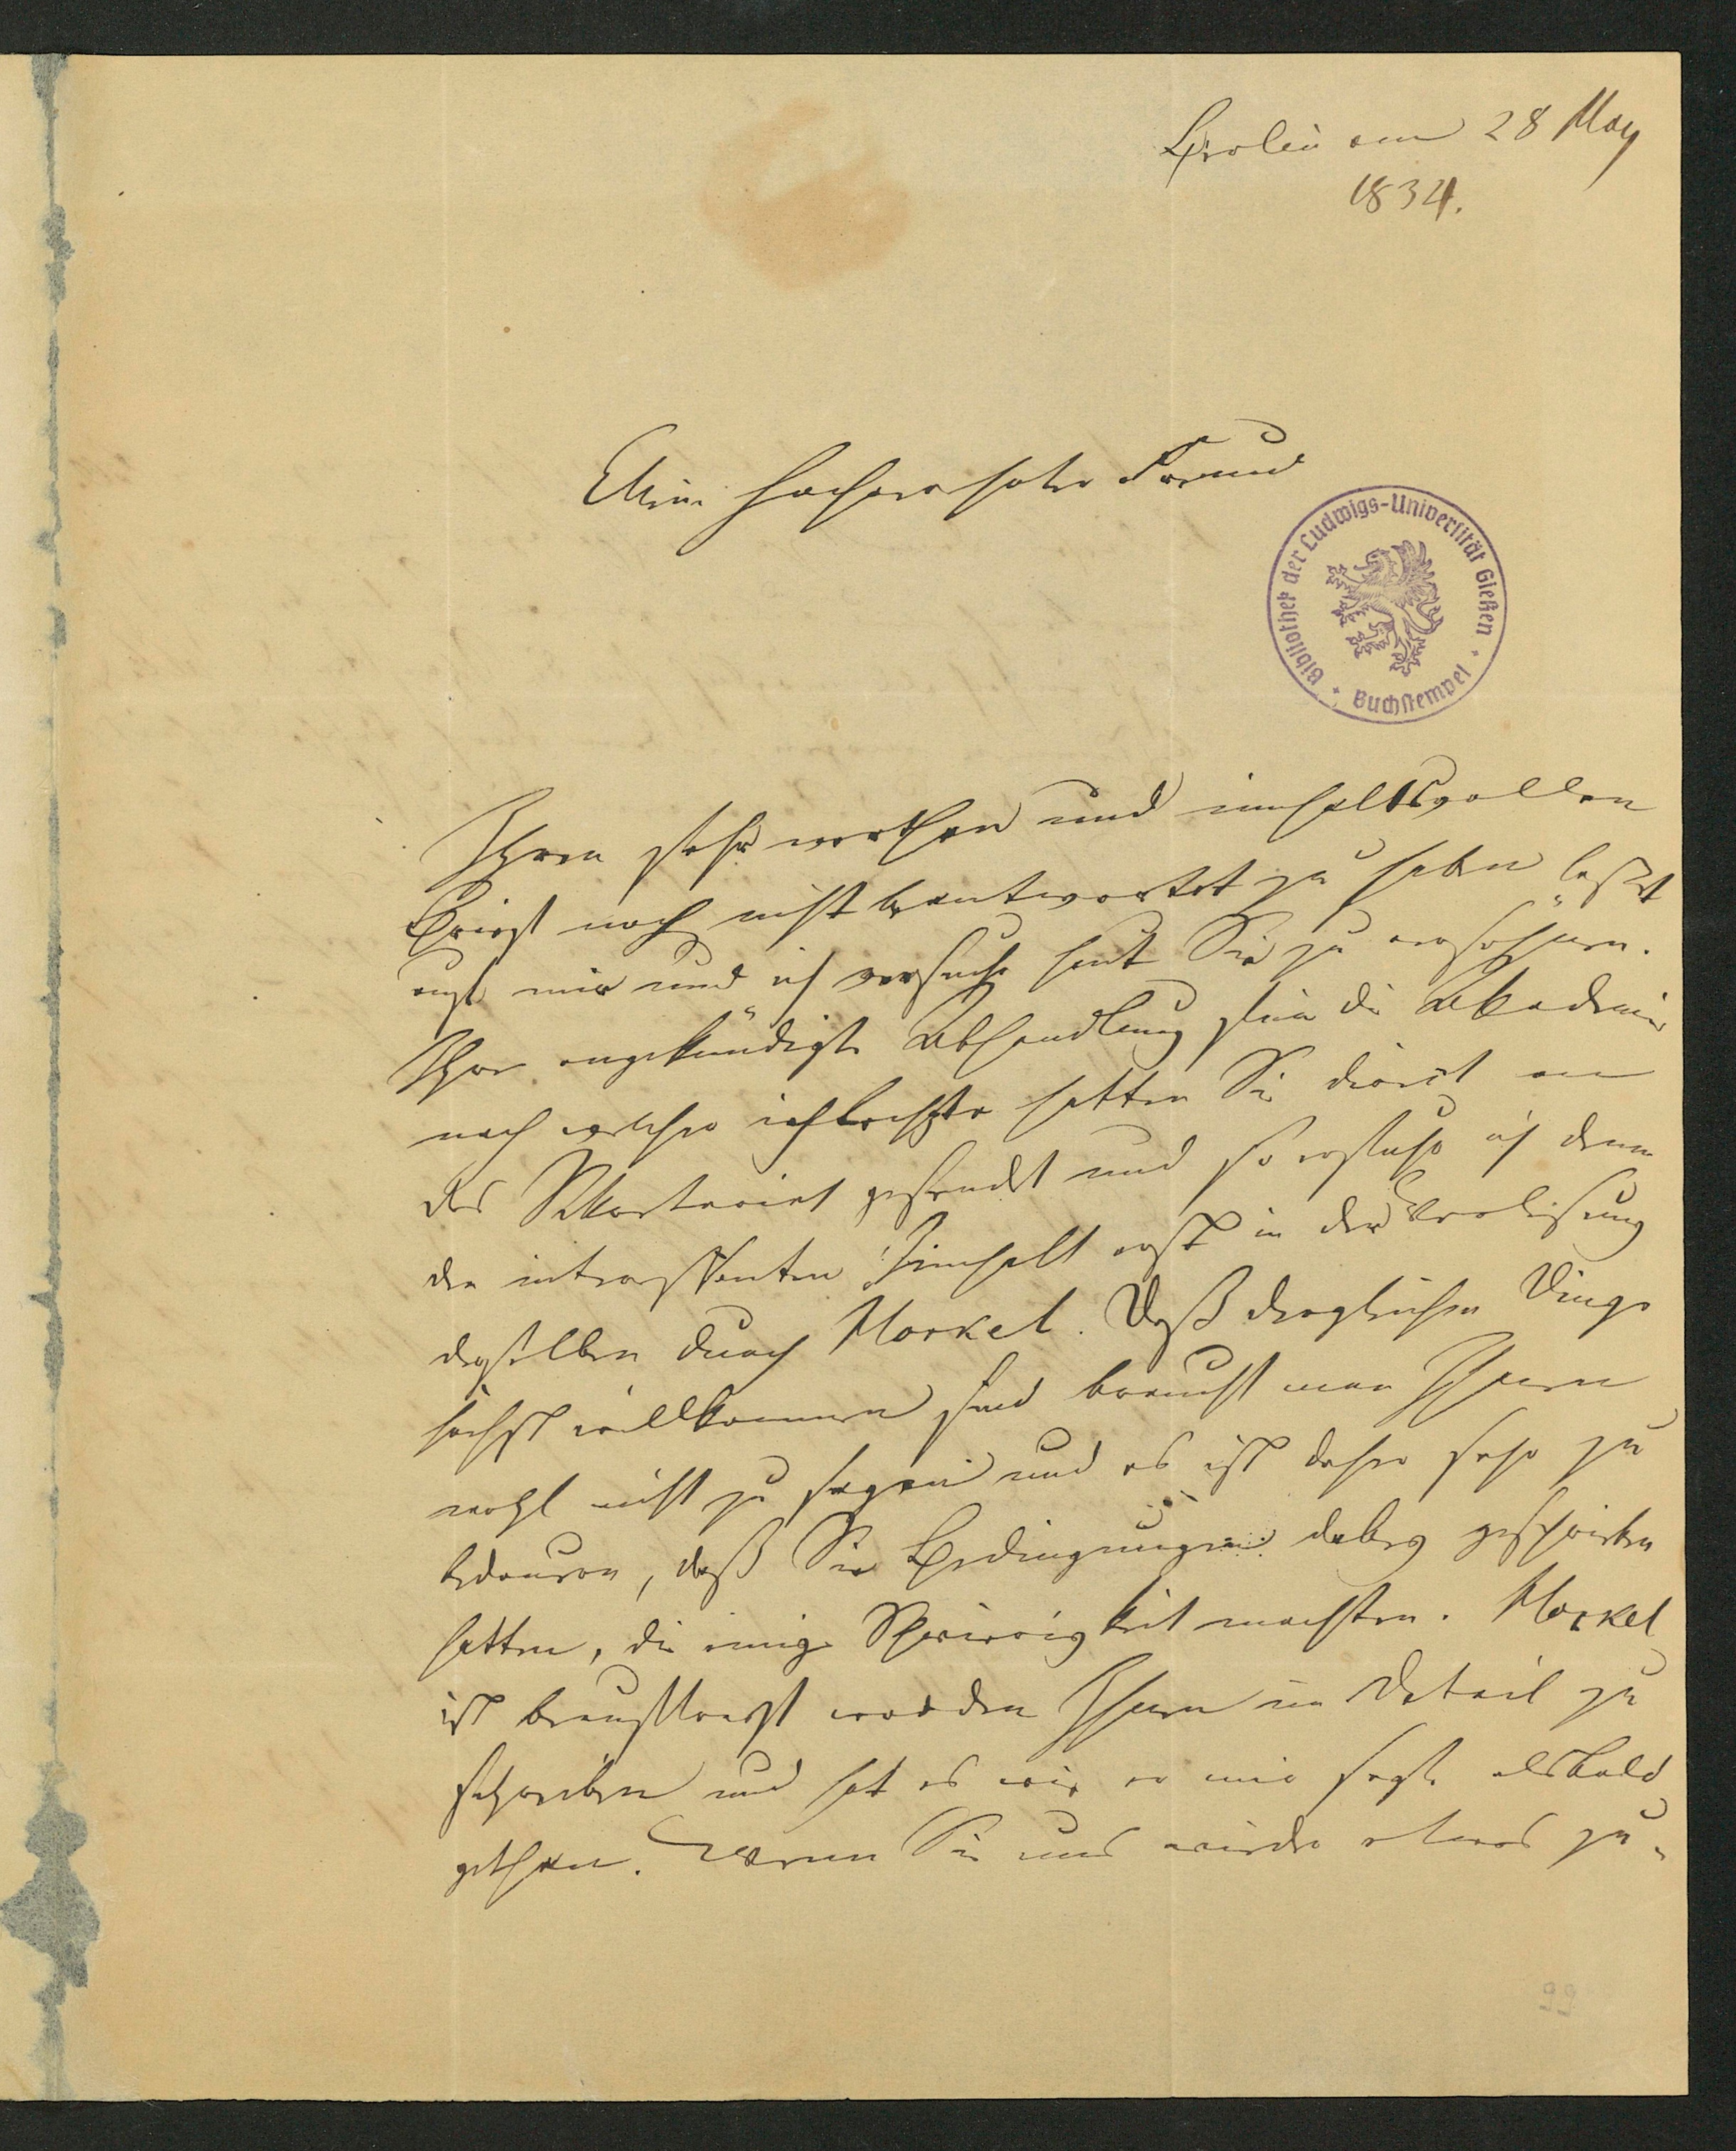 Berlin am 28 May
1834.
Mein hochverehrter Freund
Bibliothek der Ludwigs-Universität Gießen
Buchstempel
Ihren sehr werthen und inhaltsvollen
Brief noch nicht beantwortet zu haben
mir und ich versuche heut Sie zu versöhnen.
Ihre angekündigte Abhandlung für die Akademie
nach welcher ich lechzte hatten Sie direct an
das Sekretariat gesendet und so erfuhr ich denn
den interessanten Inhalt erst in der Vorlesung
desselben durch Horkel. Daß dergleichen Dinge
höchst willkommen sind braucht man Ihnen
wohl nicht zu sagen und es ist daher sehr zu
bedauern, daß Sie Bedingungen dabey geschrieben
hatten, die einige Schwierigkeit machten. Horkel
ist beauftragt worden Ihnen im Detail zu
schreiben und hat es wie er mir sagte alsbald
gethan. Wenn Sie uns wieder etwas zu-